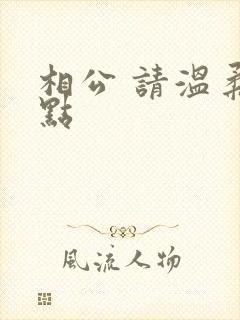 相公 請溫柔
點
風流人物